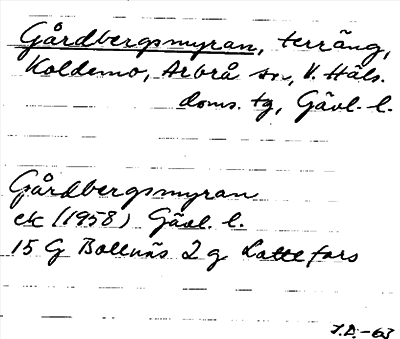 Gårdbergsmyran, terräng,
Koldemo, Arbrå sn, V. Häls.
doms. tg, Gävl. l.
Gårdbergsmyran
ek (1958) Gävl. l.
15 G Bollnäs 2 g Lottefors
J.D. -63